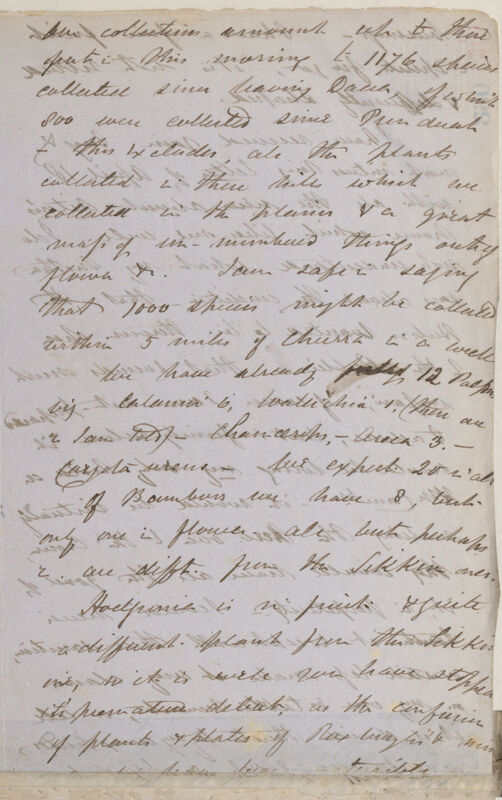 Our collections amount up to this
post this morning to 1176 species
collected since leaving Dacca, of which
800 were collected since Punduah
- this excludes, all the plants
collected in these hills which we
collected in the plains & a great
mass of un-numbered things out of
flower &c. I am safe in saying
that 1000 species might be collected
within 5 miles of Churra in a week
We have already 12 Palms
viz - Calami 6, Wallichia 1. (there are
2 I am told) - Chamaerops, - Areca 3. -
Caryota urens - We expect 20 in all
Of Bamboos we have 8, but
only one in flower all but perhaps
2 are difft. from the Sikkim ones.
Hodgsonia is in fruit & quite
a different plant from the Sikkim
one, so it is well you have stopped
its premature debut, as the confusion
of plants & plates of Roxburgh's & mine
have been terrible